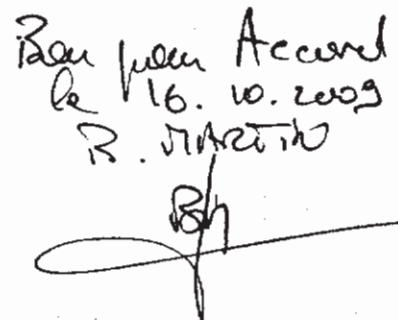 Bon pour Accord
le 16.10.2009
R. MARTIN